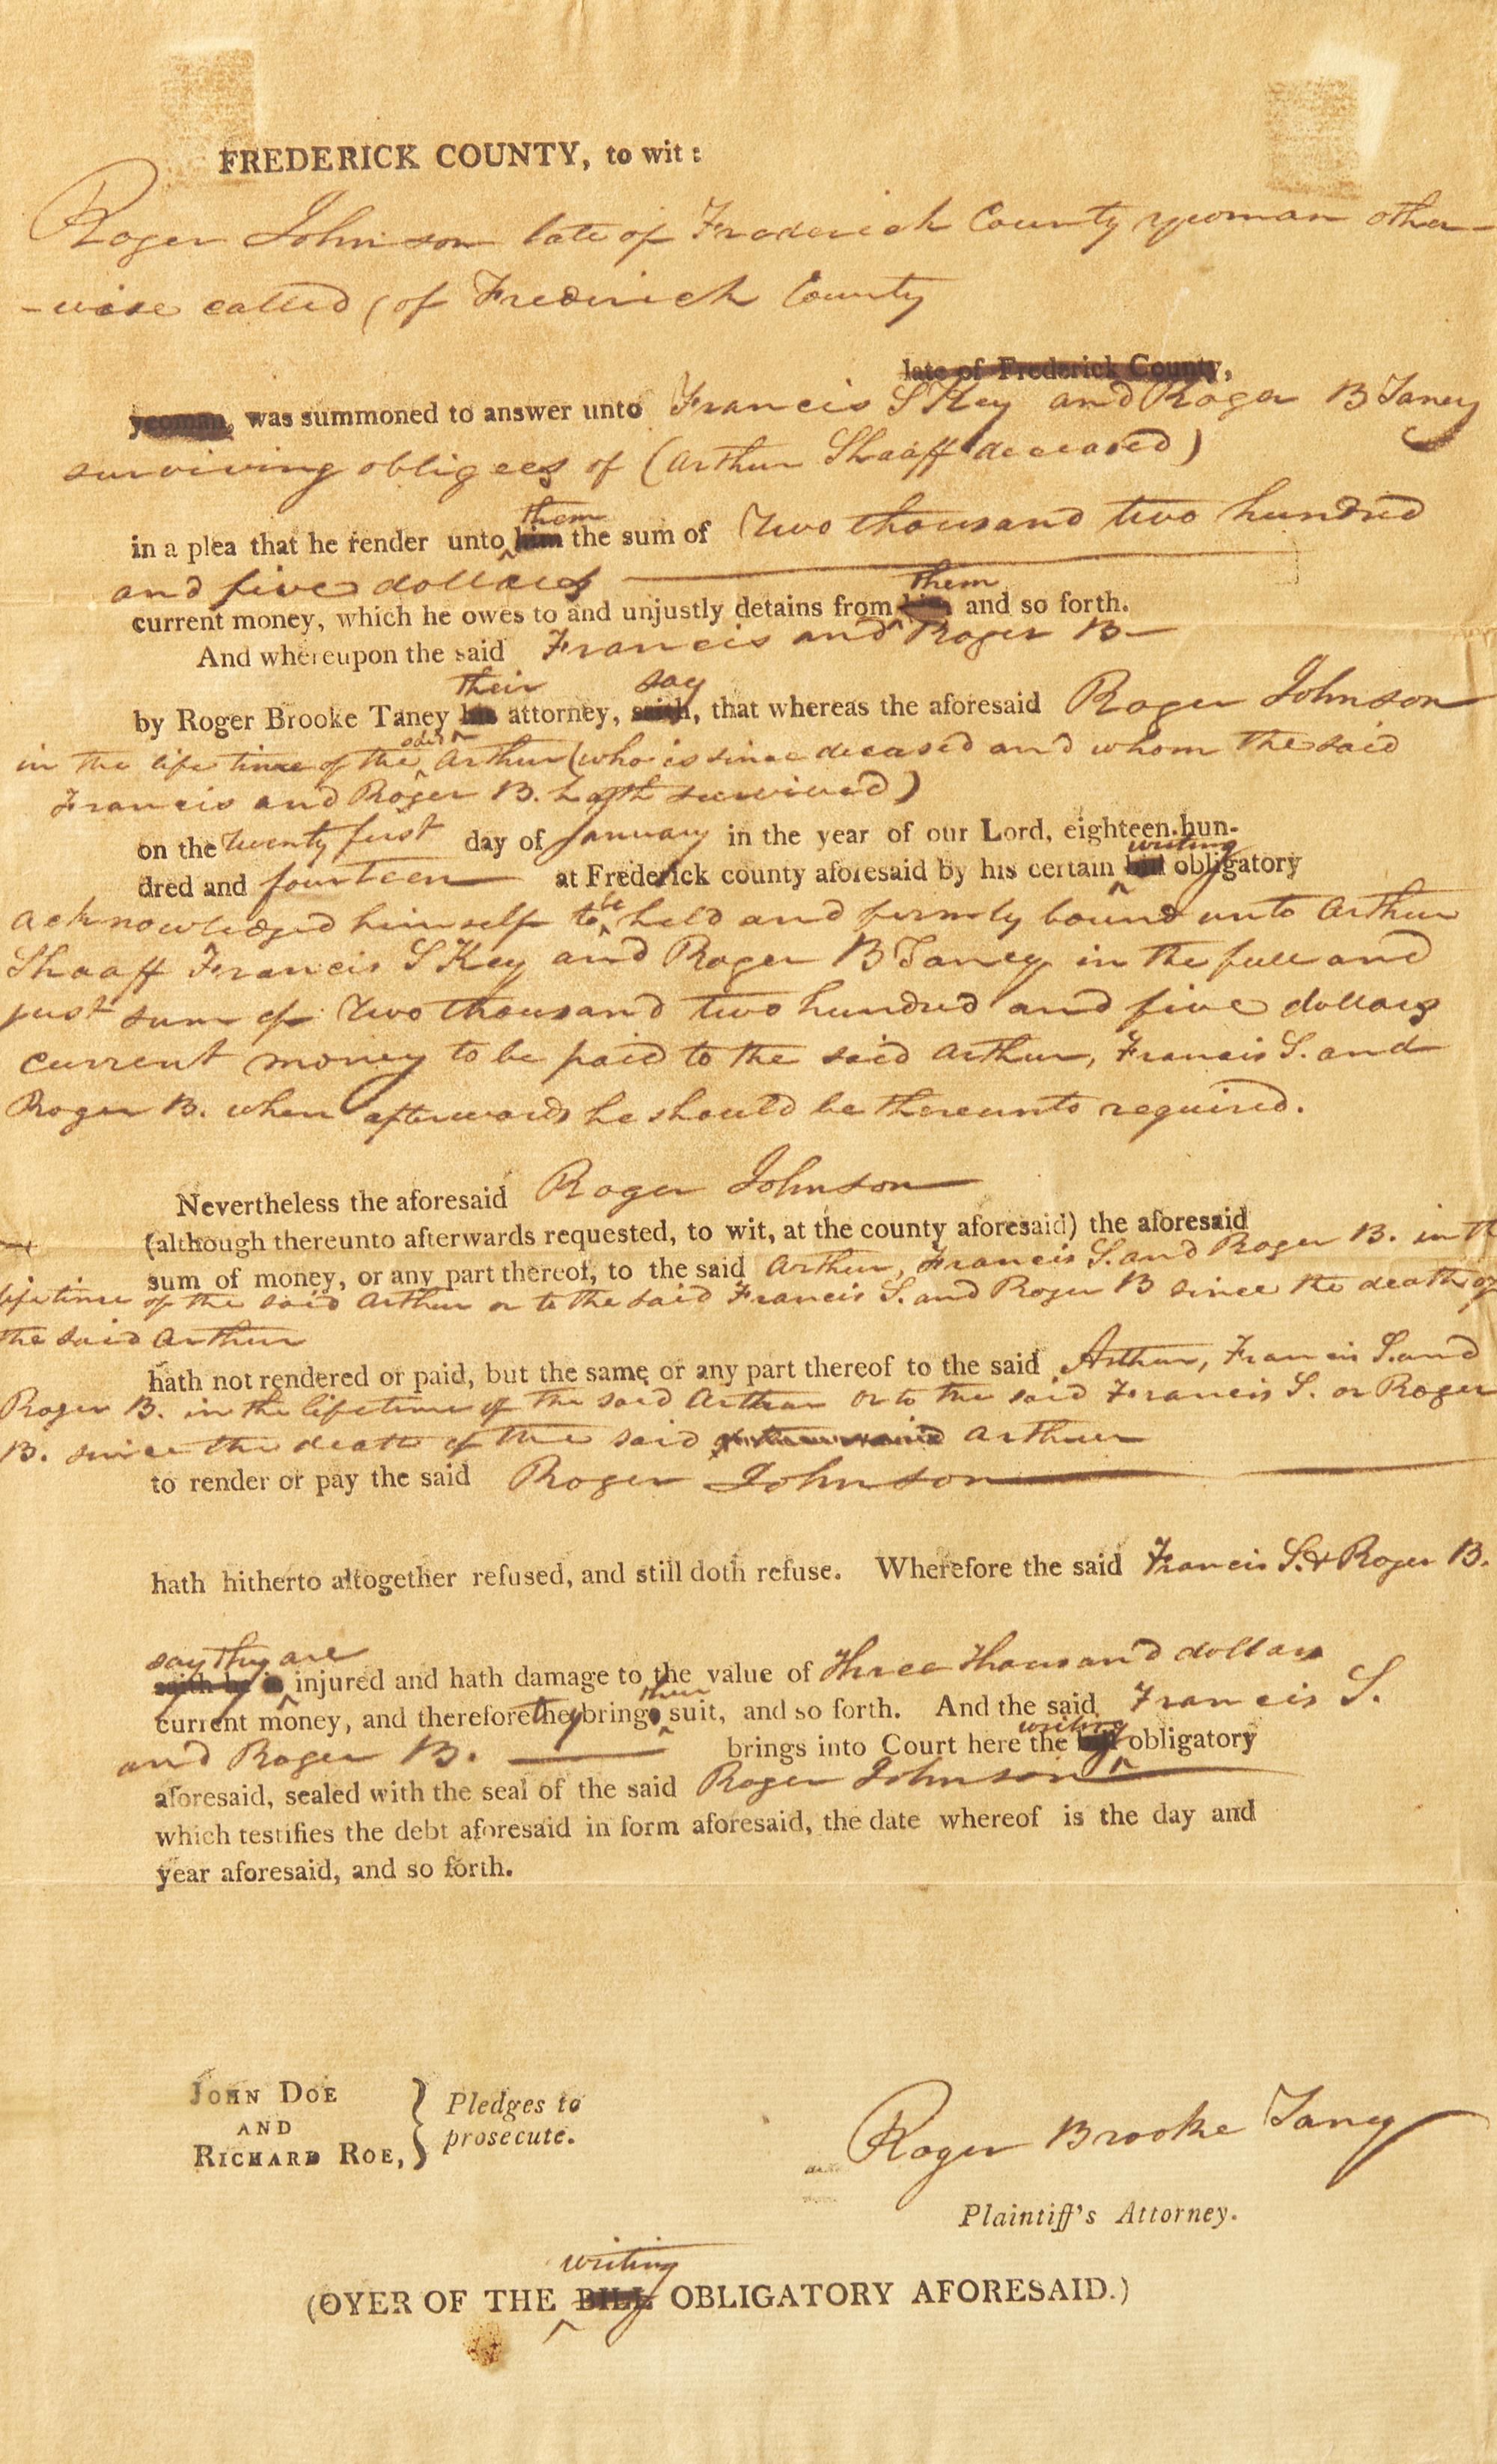 FREDERICK COUNTY, to wit:
Roger Johnson late of Frederick County yeoman other-
-wise called, of Frederick County
late of Frederick County,
yeoman, was summoned to answer unto Francis S Key and Roger B Taney
surviving obligees of (Arthur Shaaff deceased)
them
in a plea that he render unto him the sum of Two thousand two hundred
and five dollars
them
current money, which he owes to and unjustly detains from him and so forth.
And whereupon the said Francis and Roger B
their say
by Roger Brooke Taney his attorney, saith, that whereas the aforesaid Roger Johnson
in the life time of the said Arthur (who is since deceased and whom the said
Francis and Roger B. hath survived)
on the twenty first day of January in the year of our Lord, eighteen hun-
writing
dred and fourteen at Frederick county aforesaid by his certain bill obligatory
acknowledged himself to be held and firmly bound unto Arthur
Shaaff Francis S Key and Roger B Taney in the full and
just sum of Two thousand two hundred and five dollars
current money to be paid to the said Arthur, Francis S. and
Roger B. when afterwards he should be thereunto required.
Nevertheless the aforesaid Roger Johnson
(although thereunto afterwards requested, to wit, at the county aforesaid) the aforesaid
sum of money, or any part thereof, to the said Arthur, Francis S. and Roger B. in the
lifetime of the said Arthur or to the said Francis S. and Roger B since the death of
the said Arthur
hath not rendered or paid, but the same or any part thereof to the said Arthur, Francis S. and
Roger B. in the lifetime of the said Arthur or to the said Francis S. or Roger
B. since the death of the said Arthur
to render or pay the said Roger Johnson
hath hitherto altogether refused, and still doth refuse. Wherefore the said Francis S. & Roger B.
say they are
saith he is injured and hath damage to the value of Three thousand dollars
their
current money, and therefore they brings suit, and so forth. And the said Francis S.
writing
and Roger B. brings into Court here the bill obligatory
aforesaid, sealed with the seal of the said Roger Johnson
which testifies the debt aforesaid in form aforesaid, the date whereof is the day and
year aforesaid, and so forth.
JOHN DOE
AND
RICHARD ROE,
} Pledges to
prosecute.
Roger Brooke Taney
Plaintiff's Attorney.
writing
(OYER OF THE BILL OBLIGATORY AFORESAID.)